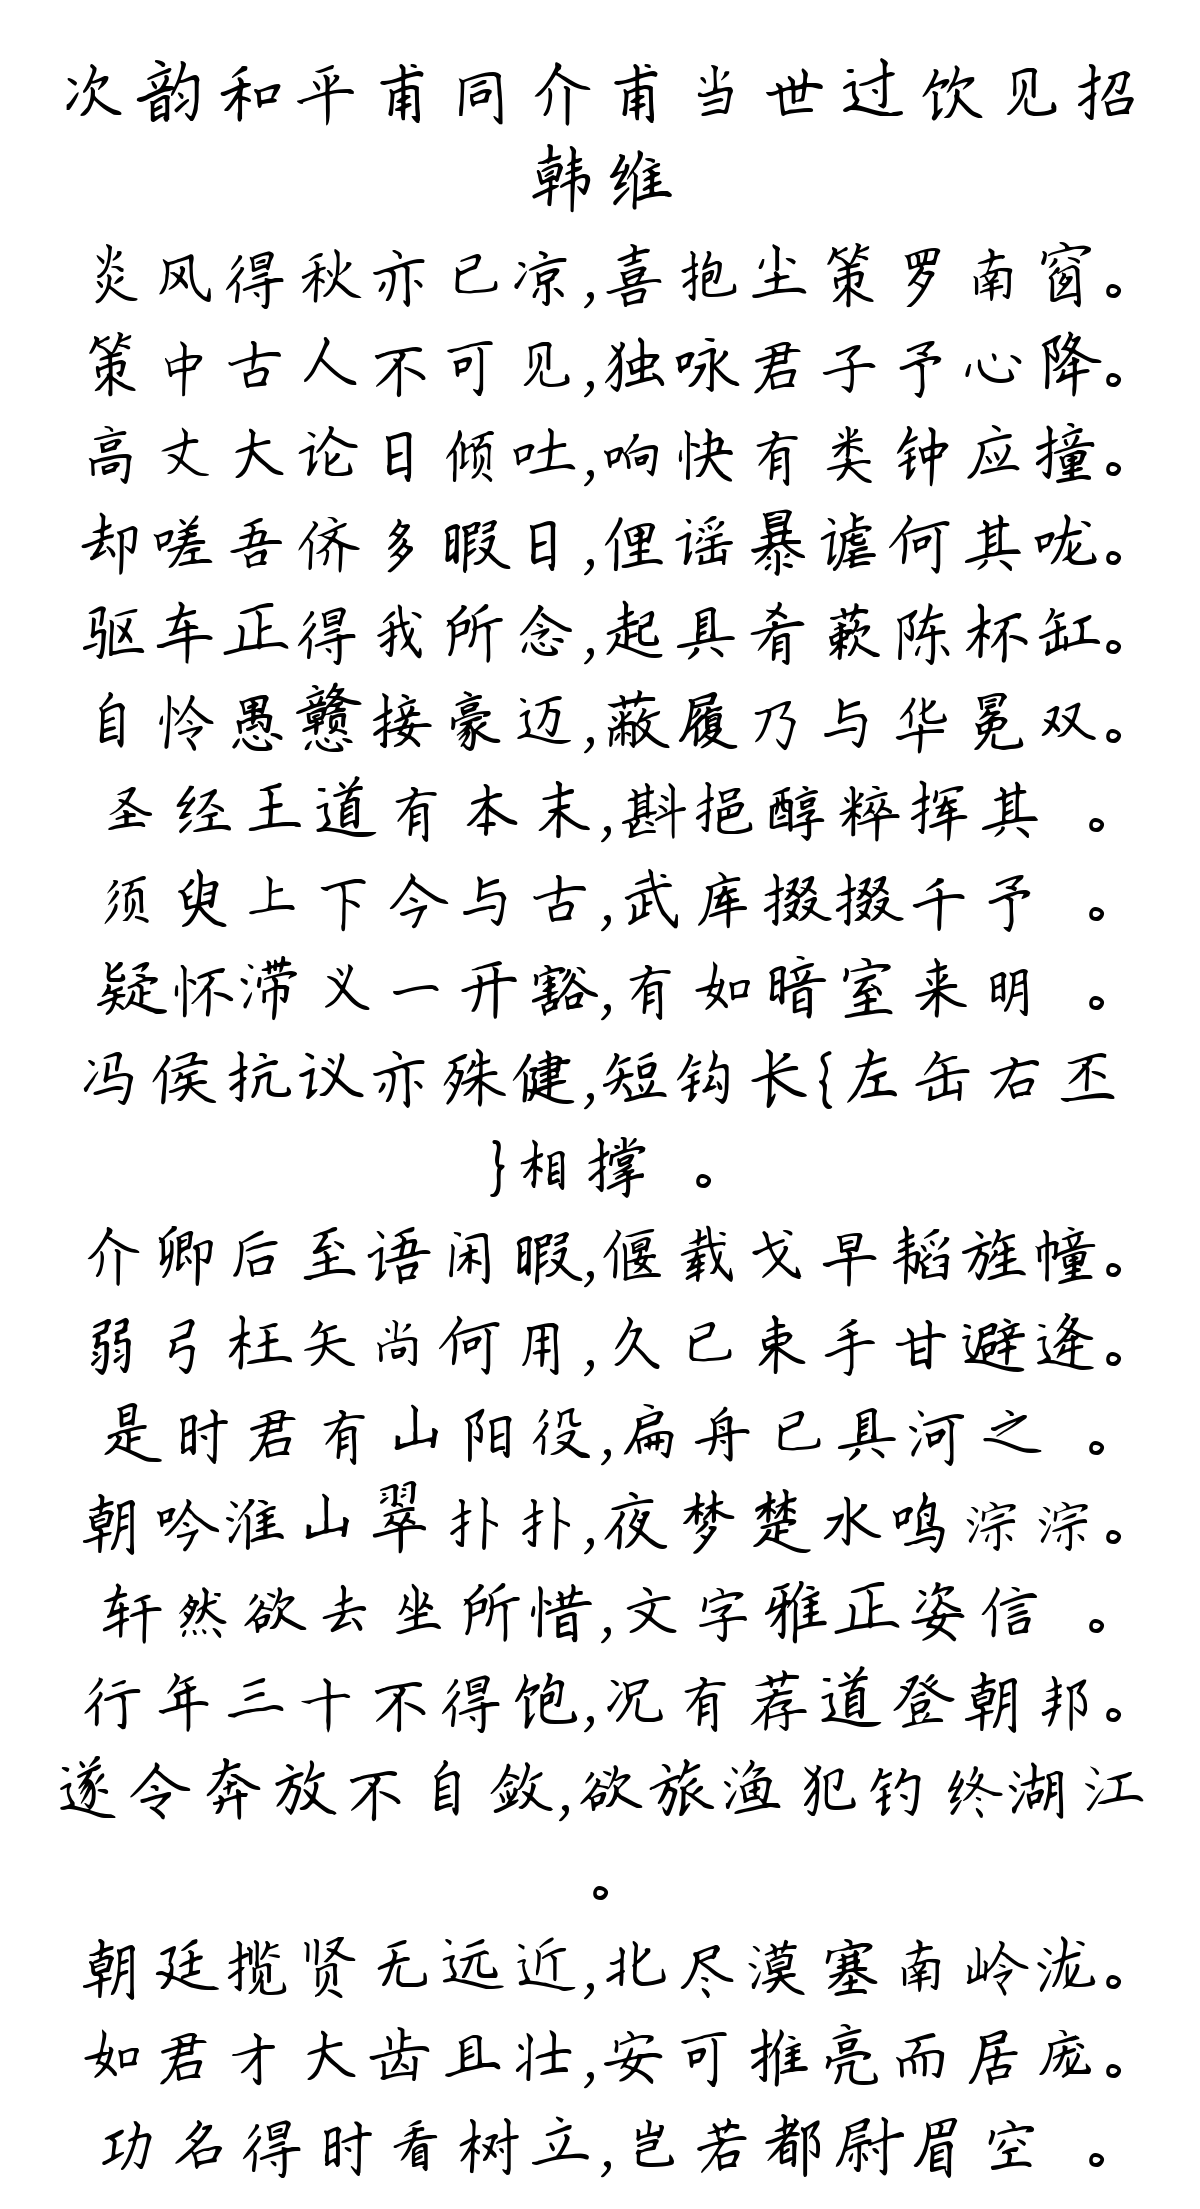 次韵和平甫同介甫当世过饮见招
韩维
炎风得秋亦已凉,喜抱尘策罗南窗。
策中古人不可见,独咏君子予心降。
高丈大论日倾吐,响快有类钟应撞。
却嗟吾侪多暇日,俚谣暴谑何其咙。
驱车正得我所念,起具肴蔌陈杯缸。
自怜愚戆接豪迈,蔽履乃与华冕双。
圣经王道有本末,斟挹醇粹挥其 。
须臾上下今与古,武库掇掇千予 。
疑怀滞义一开豁,有如暗室来明 。
冯侯抗议亦殊健,短钩长{左缶右丕
}相撑 。
介卿后至语闲暇,偃载戈早韬旌幢。
弱弓枉矢尚何用,久已束手甘避逄。
是时君有山阳役,扁舟已具河之 。
朝吟淮山翠扑扑,夜梦楚水鸣淙淙。
轩然欲去坐所惜,文字雅正姿信 。
行年三十不得饱,况有荐道登朝邦。
遂令奔放不自敛,欲旅渔犯钓终湖江
。
朝廷揽贤无远近,北尽漠塞南岭泷。
如君才大齿且壮,安可推亮而居庞。
功名得时看树立,岂若都尉眉空 。